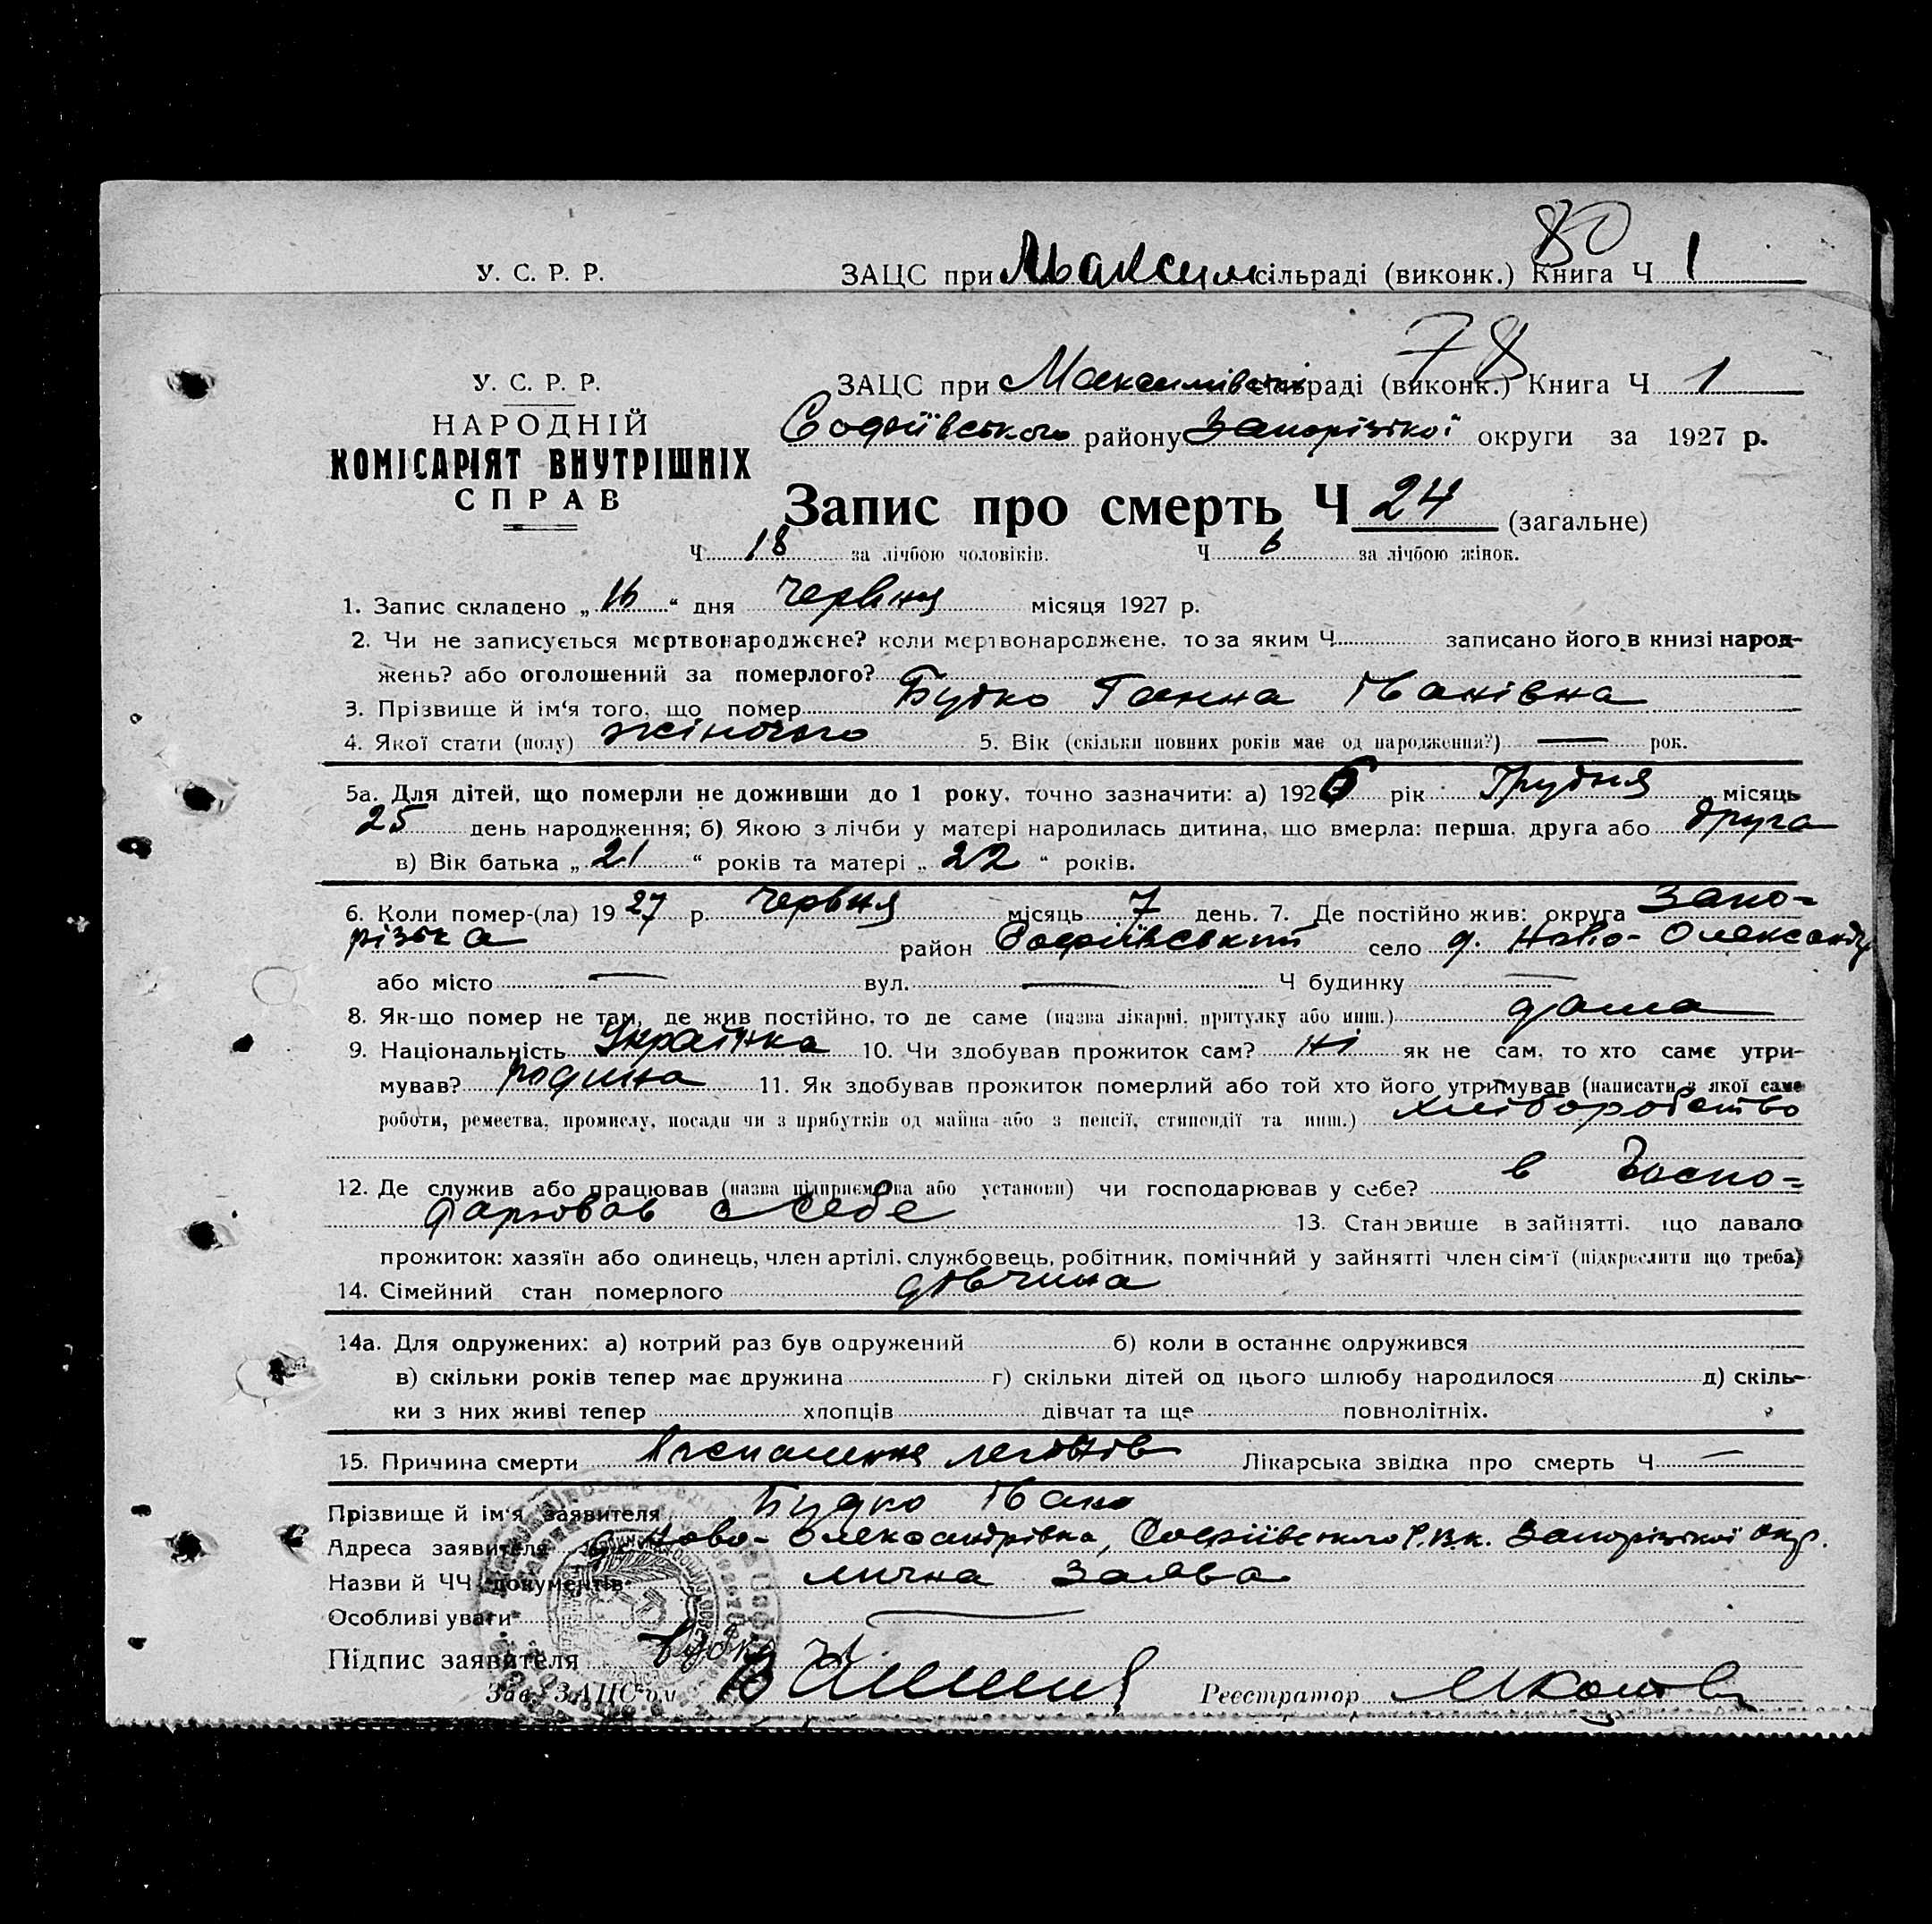 80
У. С. Р. Р. ЗАЦС при Максим сільраді (виконк.) Книга Ч 1
78
У. С. Р. Р. ЗАЦС при Максимівській сільраді (виконк.) Книга Ч 1
НАРОДНІЙ Софіївського району Запорізької округи за 1927 р.
КОМІСАРІЯТ ВНУТРІШНІХ
СПРАВ Запис про смерть Ч 24 (загальне)
Ч 18 за лічбою чоловіків. Ч 6 за лічбою жінок.
1. Запис складено „ 16 “ дня Червня місяця 1927 р.
2. Чи не записується мертвонароджене? коли мертвонароджене, то за яким Ч записано його в книзі народ-
жень? або оголошений за померлого?
3. Прізвище й ім‘я того, що помер Будко Ганна Іванівна
4. Якої стати (полу) жіночого 5. Вік (скільки повних років має од народження?) — рок.
5а. Для дітей, що померли не доживши до 1 року, точно зазначити: а) 1926 рік Грудня місяць
25 день народження; б) Якою з лічби у матері народилась дитина, що вмерла: перша, друга або друга
в) Вік батька „ 21 “ років та матері „ 22 “ років.
6. Коли помер-(ла) 19 27 р. Червня місяць 7 день. 7. Де постійно жив: округа Запо-
різька район Софіївський село д. Ново-Олександр
або місто — вул. — Ч будинку —
8. Як-що помер не там, де жив постійно, то де саме (назва лікарні, притулку або инш.) дома
9. Національність Українка 10. Чи здобував прожиток сам? ні як не сам, то хто саме утри-
мував? родина 11. Як здобував прожиток померлий або той хто його утримував (написати з якої саме
роботи, ремества, промислу, посади чи з прибутків од майна або з пенсії, стипендії та инш.) хліборобство
12. Де служив або працював (назва підприємства або установи) чи господарював у себе? в Госпо-
дарював с себе 13. Становище в зайнятті, що давало
прожиток: хазяїн або одинець, член артілі, службовець, робітник, помічний у зайнятті член сім‘ї (підкреслити що треба)
14. Сімейний стан померлого дівчина
14а. Для одружених: а) котрий раз був одружений б) коли в останнє одружився
в) скільки років тепер має дружина г) скільки дітей од цього шлюбу народилося д) скіль-
ки з них живі тепер хлопців дівчат та ще повнолітніх.
15. Причина смерти легенів Лікарська звідка про смерть Ч —
Прізвище й ім‘я заявителя Будко Іван
Адреса заявителя д. Ново-Олександрівка, Софіївського Р.В.К. Запорізької окр.
Назви й ЧЧ документів лична заява
Особливі уваги —
Підпис заявителя Будко
Зав. ЗАЦС‘ом Реєстратор